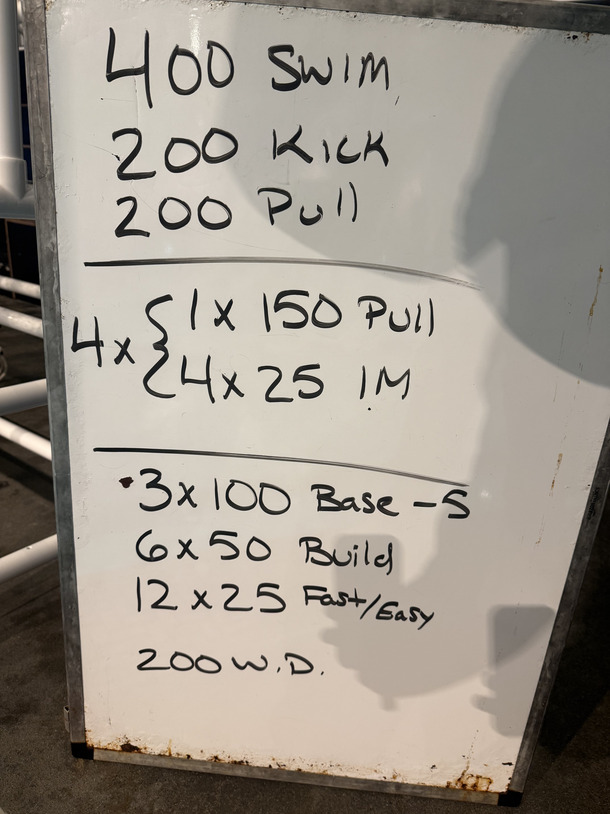 400 SWIM
200 KICK
200 Pull
4x { 1x 150 Pull
4x25 IM
3x100 Base -5
6x50 Build
12x25 Fast/Easy
200 W.D.